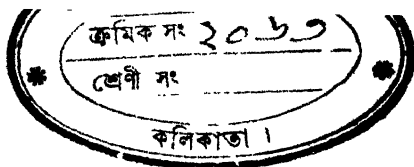 ক্রমিক সং ২০১৩
শ্রেণী সং
কলিকাতা ।